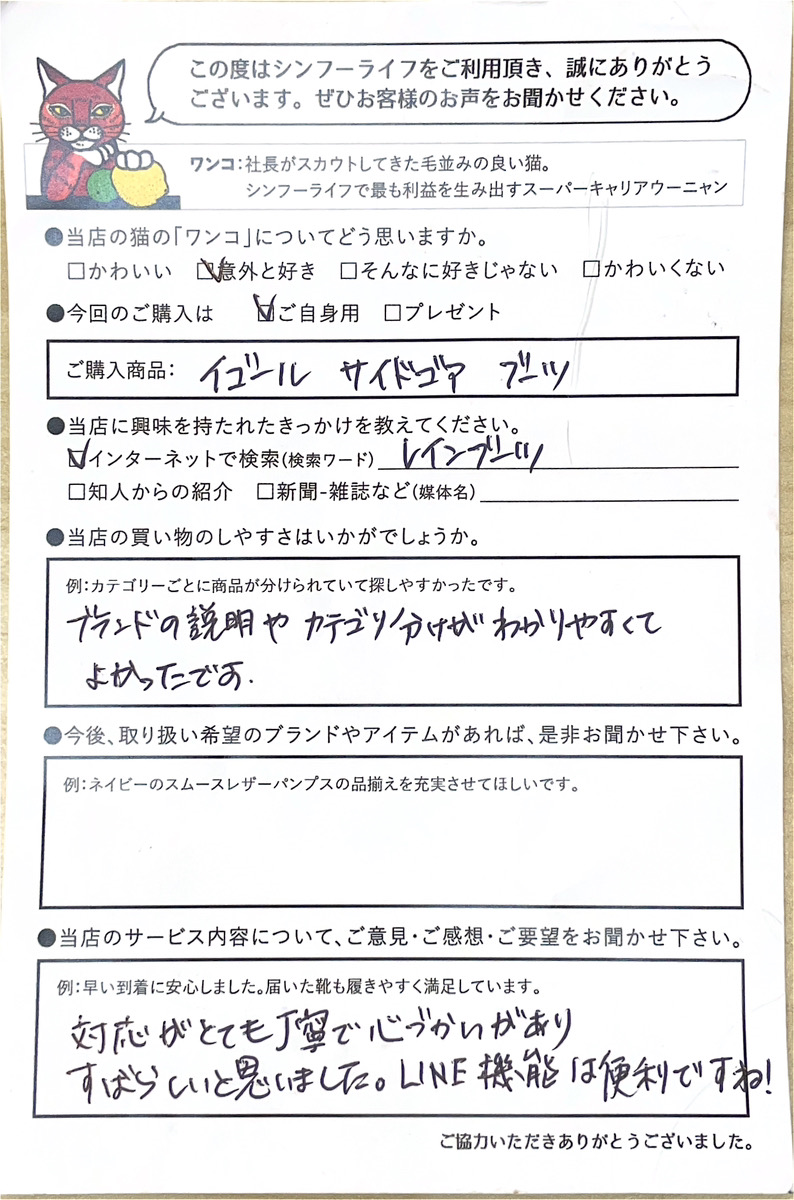 この度はシンフーライフをご利用頂き、誠にありがとう
ございます。ぜひお客様のお声をお聞かせください。
ワンコ：社長がスカウトしてきた毛並みの良い猫。
シンフーライフで最も利益を生み出すスーパーキャリアウーニャン
●当店の猫の「ワンコ」についてどう思いますか。
□かわいい ☑意外と好き □そんなに好きじゃない □かわいくない
●今回のご購入は ☑ご自身用 □プレゼント
ご購入商品： イゴール サイドゴア ブーツ
●当店に興味を持たれたきっかけを教えてください。
☑インターネットで検索(検索ワード) レインブーツ
□知人からの紹介 □新聞-雑誌など(媒体名)
●当店の買い物のしやすさはいかがでしょうか。
例：カテゴリーごとに商品が分けられていて探しやすかったです。
ブランドの説明や カテゴリ分けが わかりやすくて
よかったです.
●今後、取り扱い希望のブランドやアイテムがあれば、是非お聞かせ下さい。
例：ネイビーのスムースレザーパンプスの品揃えを充実させてほしいです。
●当店のサービス内容について、ご意見・ご感想・ご要望をお聞かせ下さい。
例：早い到着に安心しました。届いた靴も履きやすく満足しています。
対応がとても丁寧で心づかいがあり
すばらしいと思いました。LINE機能は便利ですね!
ご協力いただきありがとうございました。